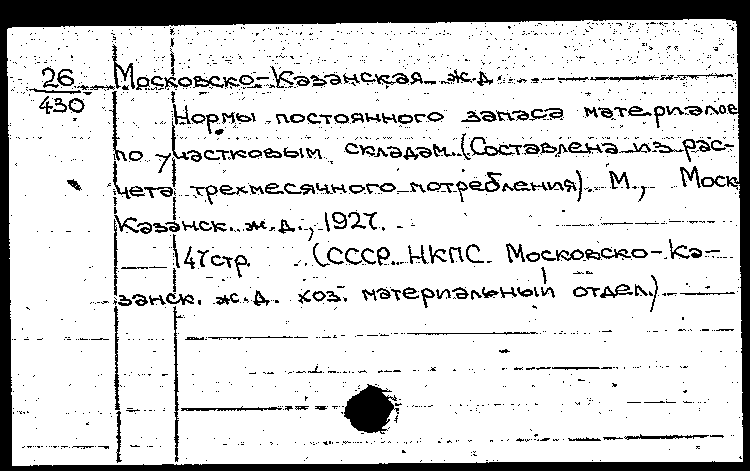 26 Московско-Казанская ж.д.
430
Нормы постоянного запаса материалов
по участковым складам. (Составлена из рас-
чета трехмесячного потребления). М., Моск
Казанск. ж.д., 1927.
147 стр. (СССР. НКПС. Московско-Ка-
занск. ж.д. хоз. материальный отдел.)